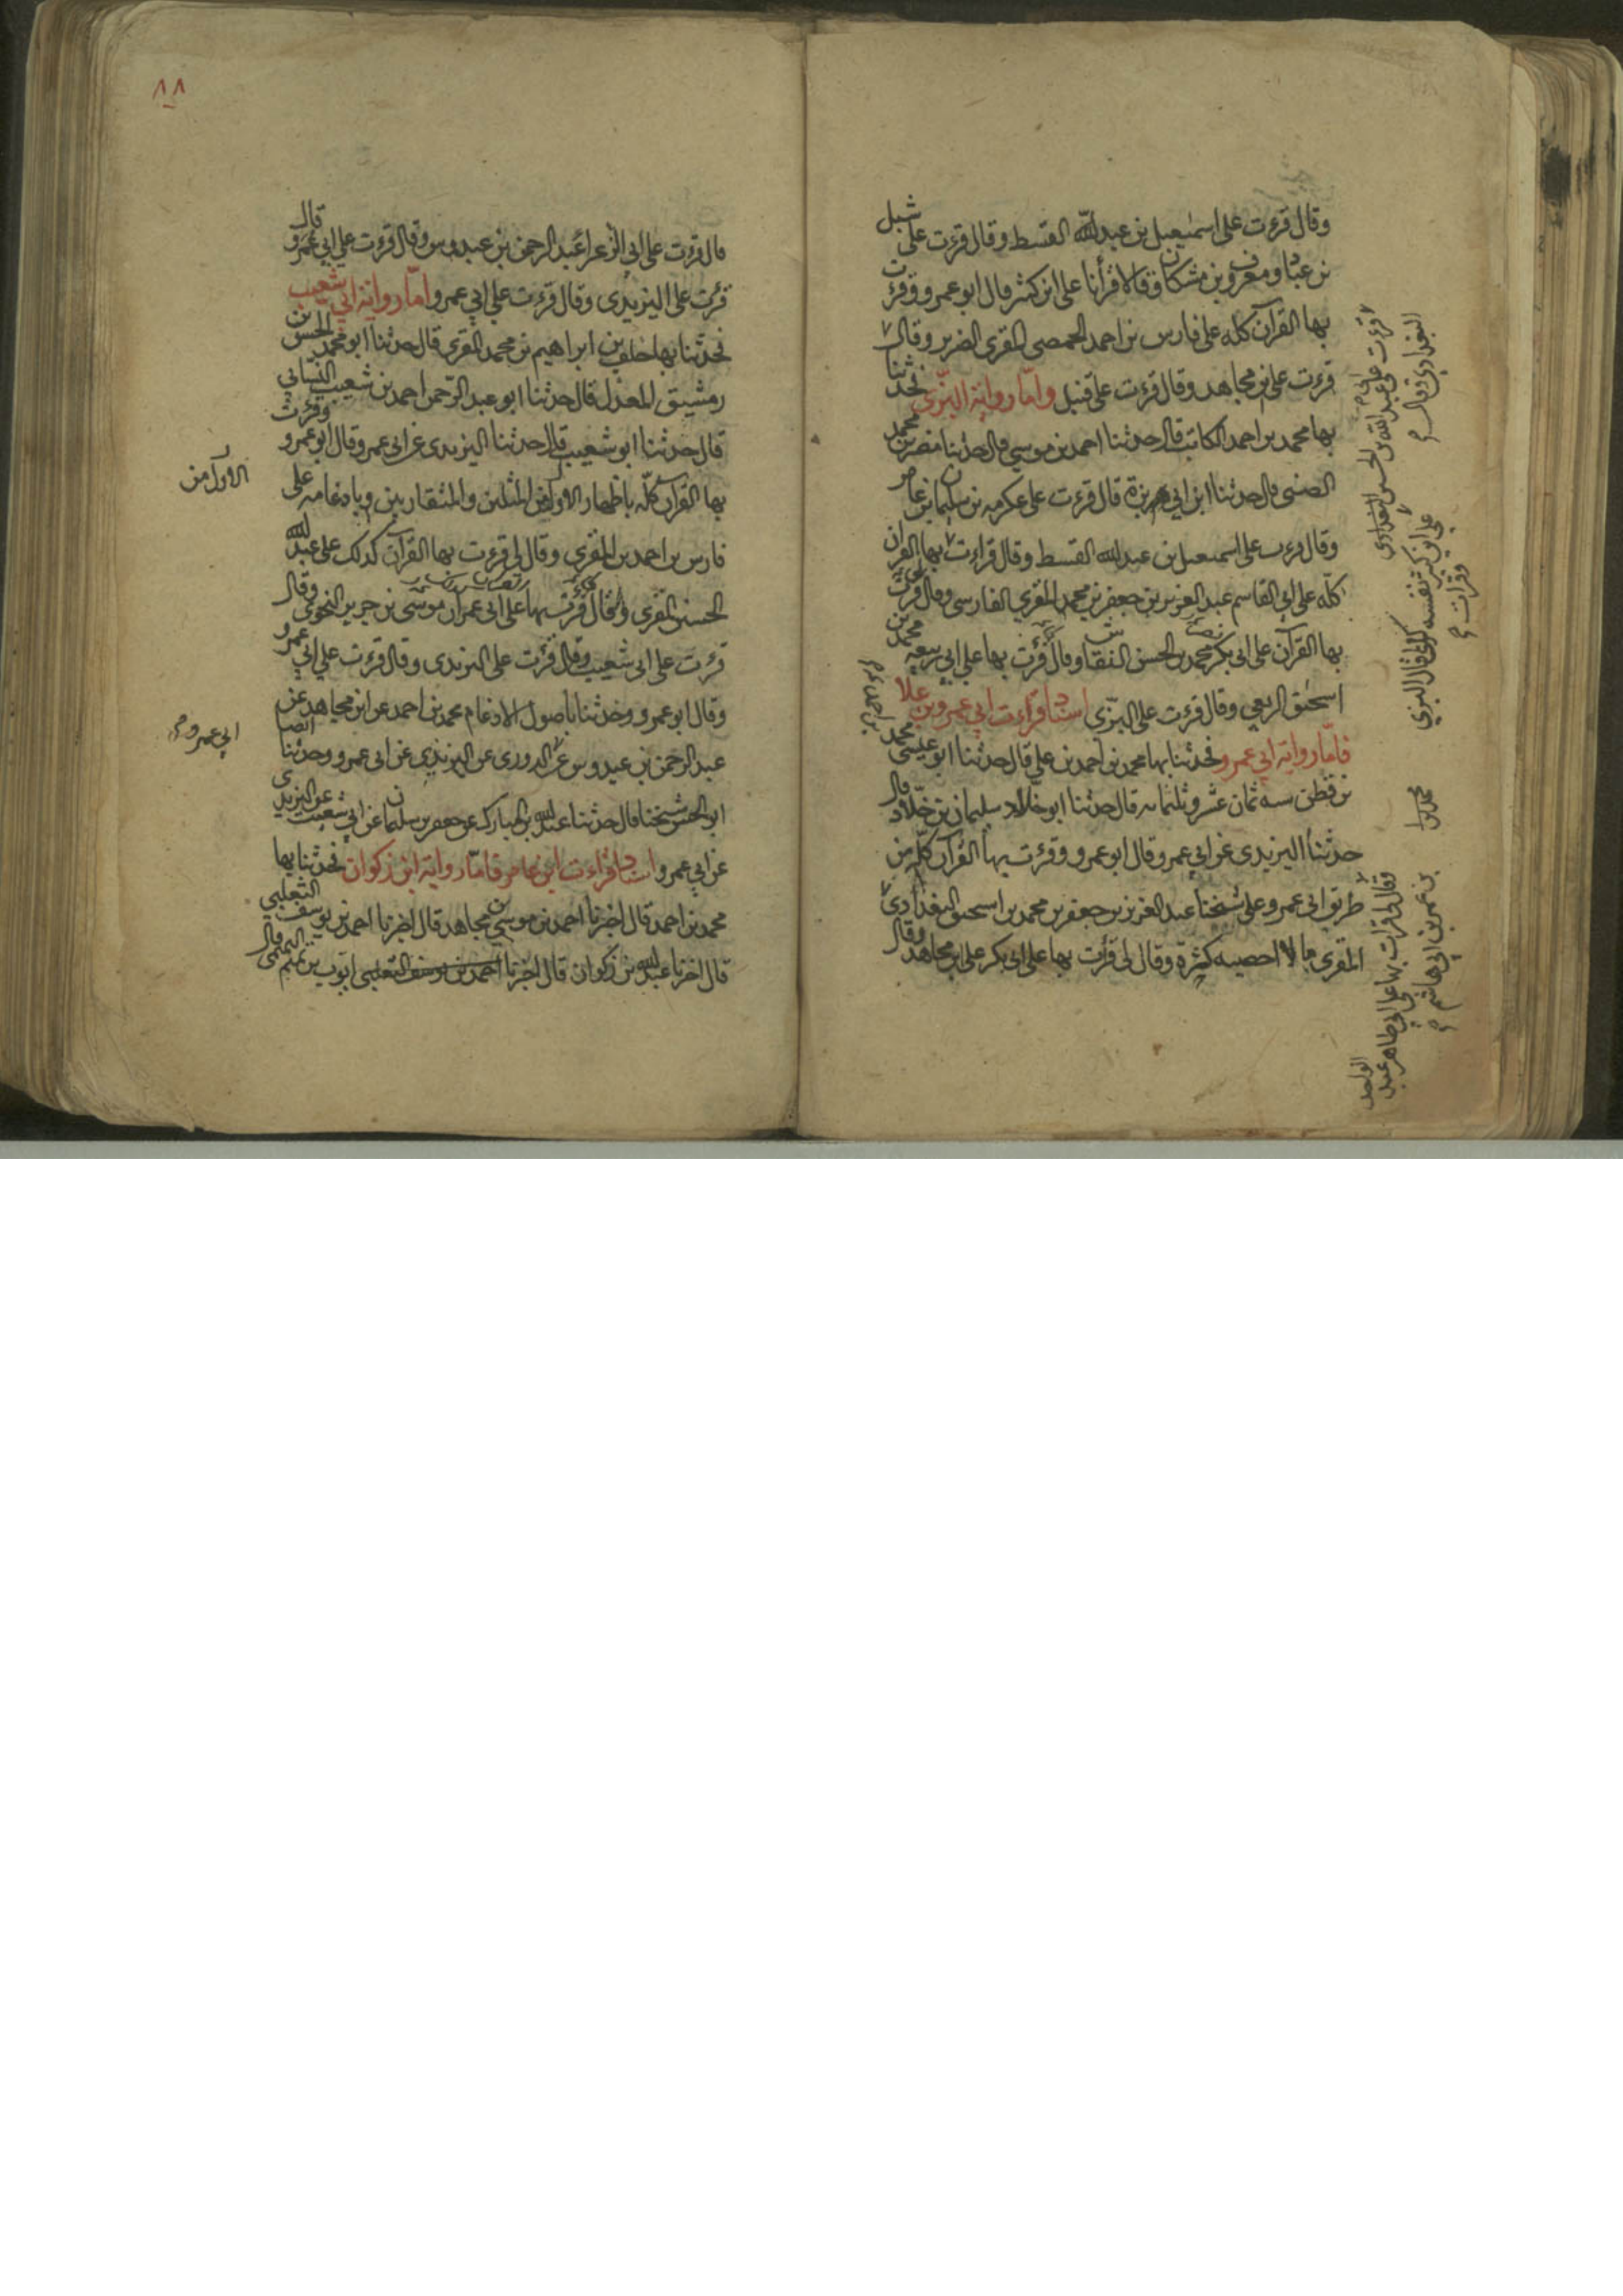 وقال قرءت على اسمعيل بن عبدالله القسط وقال قرءت على شبل
بن عباد ومعروف بن مشكان وقالا قرأنا على ابن كثير قال ابو عمرو وقرءت
بها القرآن كله على فارس بن احمد الحمصى المقرى الضرير وقال
قرءت على ابن مجاهد وقال قرءت على قنبل واما رواية البزى فحدثنا
بها محمد بن احمد الكاتب قال حدثنا احمد بن موسى قال حدثنا مضر بن محمد
الضبى قال حدثنا ابن ابى بزة قال قرءت على عكرمه بن سليمان بن عامر
وقال قرءت على اسمعيل بن عبدالله القسط وقال قراءت بها القران
كله على ابى القاسم عبد العزيز بن جعفر بن محمد المقرى الفارسى وقال قرءت
بها القرآن على ابى بكر محمد بن الحسن النقاش وقال قرءت بها على ابى ربيعه محمد بن
اسحق الربعى وقال قرءت على البزى اسناد قراءت ابى عمرو بن علا
فاما رواية ابى عمرو فحدثنا بها محمد بن احمد بن على قال حدثنا ابو عيسى محمد
بن قطن سنه ثمان عشر وثلثمائه قال حدثنا ابو خلاد سليمان بن خلاد قال
حدثنا اليزيدى عن ابى عمرو قال ابو عمرو وقرءت بها القرآن كله من
طريق ابى عمرو على شيخنا عبد العزيز بن جعفر بن محمد بن اسحق البغدادى
المقرى ما لا احصيه كثرة وقال لى قرأت بها على ابى بكر على ابن مجاهد وقال
قرءت على عبد الله بن الحسين البغدادى
البغدادى وقال
على ابن كثير نفسه كذا قال البزى
وقرات
احمد بن
محمد بن
وقال لى قرات بها على ابى طاهر عبد الواحد
بن عمر بن ابى هاشم
٨٨
قال قرءت على ابى الزعرا عبد الرحمن بن عبدوس وقال قرءت على ابى عمرو قال
قرئت على اليزيدى وقال قرءت على ابى عمرو اما رواية ابى شعيب
فحدثنا بها خلف بن ابراهيم بن محمد المقرى قال حدثنا ابو محمد الحسن بن
رشيق المعدل قال حدثنا ابو عبد الرحمن احمد بن شعيب النسائى
قال حدثنا ابو شعيب قال حدثنا اليزيدى عن ابى عمرو قال ابو عمرو وقرءت
بها القرآن كله باظهار الاول من المثلين والمتقاربين وبادغامه على
الاول من
فارس بن احمد بن المقرى وقال لى قرءت بها القرآن كذلك على عبد الله
الحسن المقرى وقال قرءت بها على ابى عمران موسى بن جرير النحوى وقال
قرءت على ابى شعيب وقال قرئت على اليزيدى وقال قرءت على ابى عمرو
وقال ابو عمرو وحدثنا باصول الادغام محمد بن احمد عن ابن مجاهد عن
ابى عمرو
عبد الرحمن بن عبدوس عن الدورى عن اليزيدى عن ابى عمرو وحدثنا ايضا
ابو الحسن شيخنا قال حدثنا عبد الله بن المبارك عن جعفر بن سليمان عن ابى شعيب عن اليزيدى
عن ابى عمرو اسناد قراءت ابن عامر فاما رواية ابن ذكوان فحدثنا بها
محمد بن احمد قال اخبرنا احمد بن موسى بن مجاهد قال اخبرنا احمد بن يوسف الثعلبى
قال اخبرنا عبد الله بن ذكوان قال اخبرنا احمد بن يوسف الثعلبى ايوب بن تميم التميمى قال